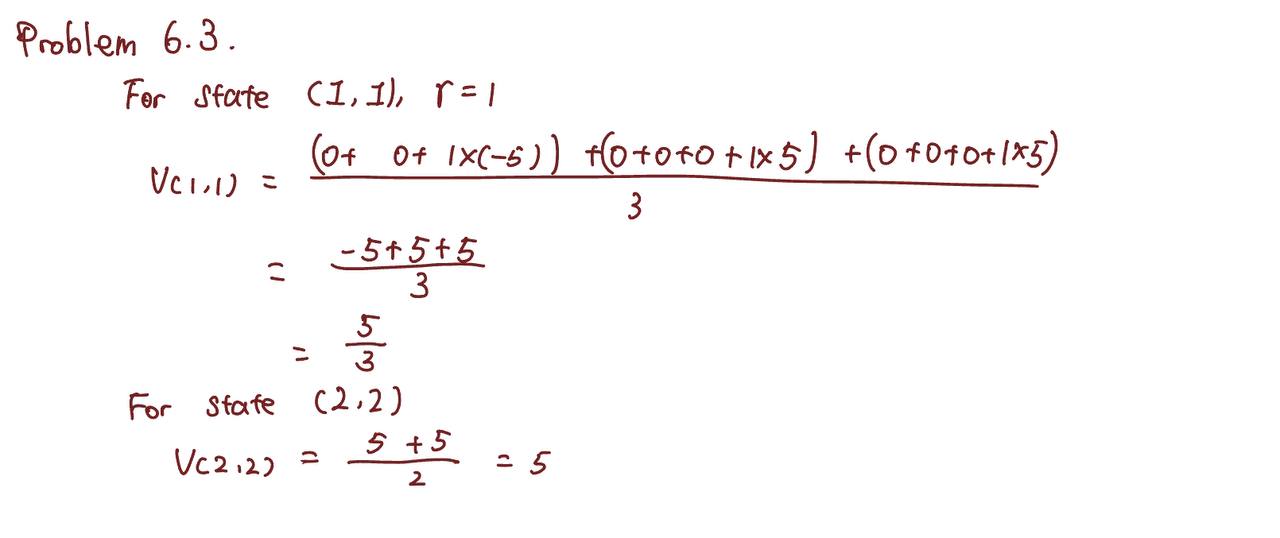 Problem 6.3.
For state (1,1), r=1
V(1,1) = \frac{(0+ 0+ 1×(-5)) +(0+0+0+1×5) +(0+0+0+1×5)}{3}
= \frac{-5+5+5}{3}
= \frac{5}{3}
For state (2,2)
V(2,2) = \frac{5+5}{2} = 5